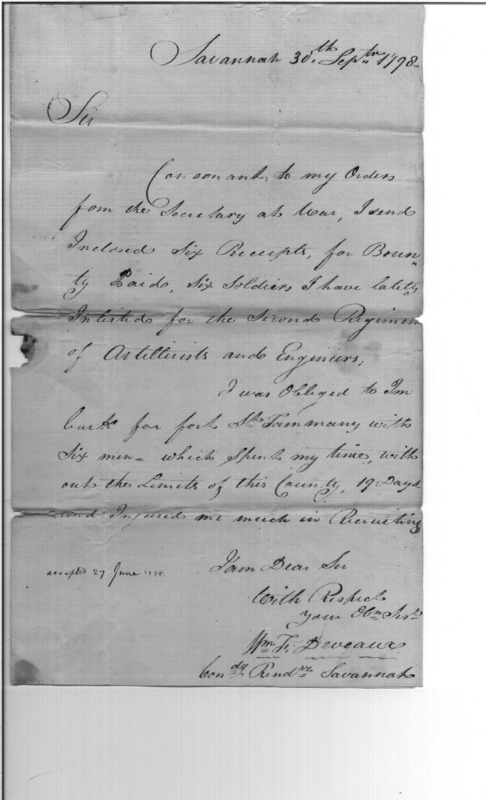 Savannah 30th Septr 1798
Sir
Consonant, to my Orders
from the Secretary at War, I send
Inclosed Six Receipts, for Boun
ty Paid, Six Soldiers I have lately
Inlisted for the Second Regimen
of Artillirists and Engineers;
I was Obliged to Im
bark for fort St Tammany with
Six min - which Spent my time, with
out the Limits of this County, 19 Days
and Injured me much in Recruiting
I am Dear Sir
With Respect
your Obn Sert
Wm F. Deveaux
Comdg Rendvs Savannah
accepted 27 June